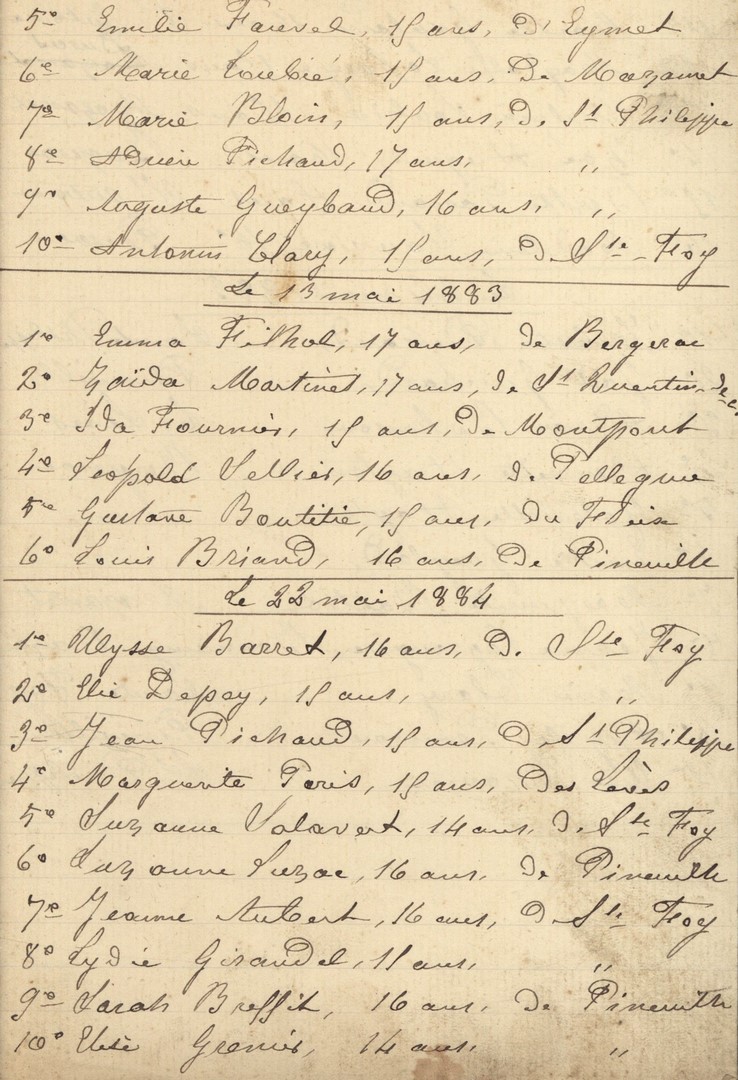 5º Emilie Fauvel, 15 ans, D'Eymet
6º Marie Loubié, 15 ans, De Mazamet
7º Marie Bloin, 15 ans, De St Philippe
8º Pichaud, 17 ans, "
9º Auguste Gueybaud, 16 ans, "
10º Antonin Clary, 15 ans, De Ste-Foy
Le 13 mai 1883
1º Emma Filhol, 17 ans, de Bergerac
2º Zaïda Martinet, 17 ans, de St Quentin
3º Ida Fournier, 15 ans, De Montpont
4º Léopold Sellier, 16 ans, de Pellegrue
5º Gustave Boutitie, 15 ans, Du Fleix
6º Louis Briand, 16 ans, De Pineuilh
Le 22 mai 1884
1º Ulysse Barret, 16 ans, De Ste Foy
2º Elie Depay, 15 ans, "
3º Jean Pichaud, 15 ans, De St Philippe
4º Marguerite Paris, 15 ans, Des Lèves
5º Suzanne Salavert, 14 ans, De Ste Foy
6º Suzanne Suzac, 16 ans, de Pineuilh
7º Jeanne Aubert, 16 ans, De Ste Foy
8º Lydie Giraudel, 15 ans, "
9º Sarah Breffit, 16 ans, de Pineuilh
10º Elise Grenier, 14 ans, "